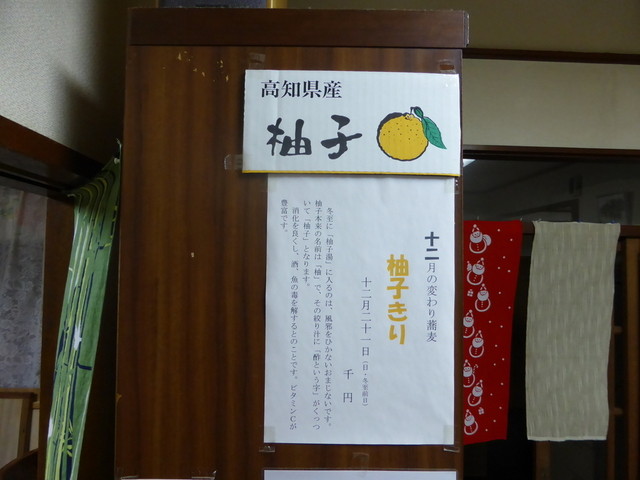 高知県産
柚子
十二月の変わり蕎麦
柚子きり
十二月二十一日（日・冬至前日）
千円
冬至に「柚子湯」に入るのは、風邪をひかないおまじないです。
柚子本来の名前は「柚」で、その絞り汁に「酢という字」がくっつ
いて「柚子」となります。
消化を良くし、酒、魚の毒を解するとのことです。ビタミンCが
豊富です。